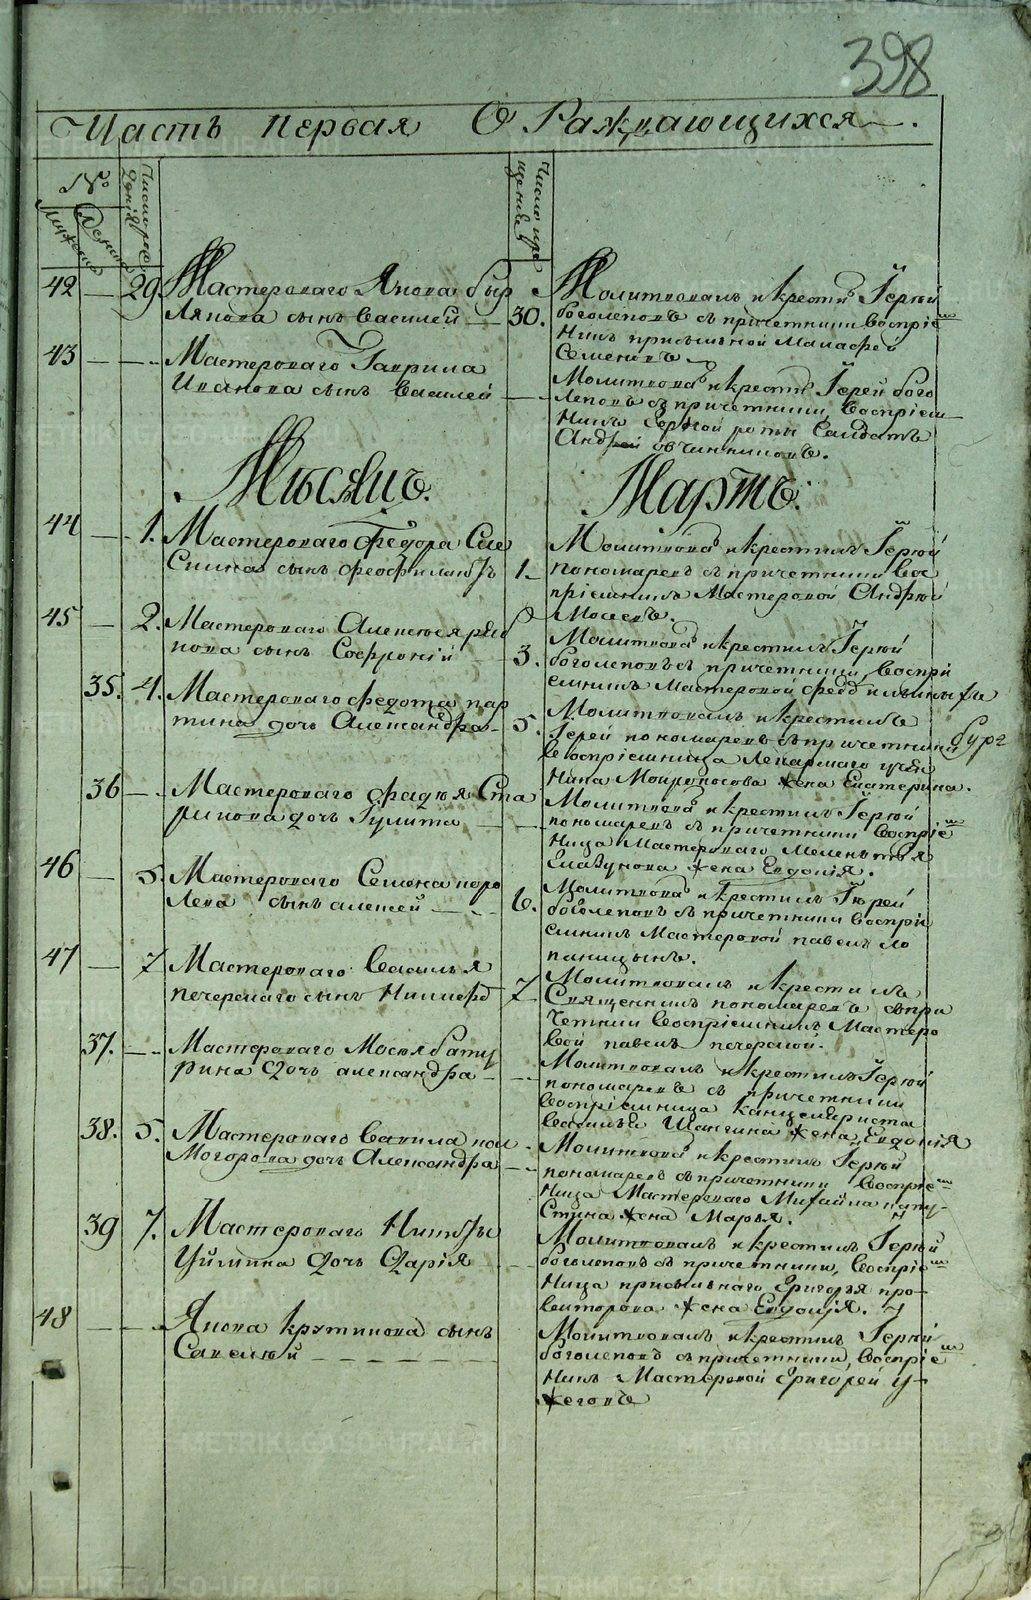 398
Часть первая О Раждающихся
№
Мужеска
Женска
Число рождения
Число крещения
42 — 29 Мастероваго Якова Быр
лянова сынъ Василей — 30.
Молитвовалъ и крестилъ Іерей
Боголеповъ съ причетники, воспріем
никъ присыльной Малафей
Семеновъ
43 — — Мастероваго Гаврила
Иванова сынъ Василей — —
Молитвовалъ и крестилъ Іерей Бого
леповъ съ причетники, воспріем
никъ горной роты салдатъ
Андрей Овчинниковъ.
Мѣсяцъ Мартъ.
44 — 1. Мастероваго Федора Сле
сина сынъ Феофилактъ 1.
Молитвовалъ и крестилъ Іерей
Пономаревъ съ причетники, вос
пріемникъ Мастеровой Андрей
Мосеевъ.
45 — 2. Мастероваго Алексея Ряб
кова сынъ Софроній — 3.
Молитвовалъ и крестилъ Іерей
Боголеповъ съ причетники, воспрі
емникъ Мастеровой Федо
35. 4. Мастероваго Федота пар
тина дочь Александра 5.
Молитвовалъ и крестилъ
Іерей Пономаревъ съ причетники
воспріемница лекарскаго учен
ника жена Екатерина.
36 — Мастероваго Фадея Ста
рикова дочь Гулита — —
Молитвовалъ и крестилъ Іерей
Пономаревъ съ причетники воспріем
ница Мастероваго Мелентья
жена Евдокія.
46 — 5. Мастероваго Семена коро
лева сынъ Алексей — 6.
Молитвовалъ и крестилъ Іерей
Боголеповъ съ причетники воспрі
емникъ Мастеровой Павелъ Ло
паницынъ.
47 — 7 Мастероваго Василья
Печерскаго сынъ Никифоръ 7
Молитвовалъ и крестилъ
Священникъ Пономаревъ съ при
четники воспріемникъ Мастеро
вой Павелъ Печерской.
37. — Мастероваго Мосея Бату
рина дочь Александра — —
Молитвовалъ и крестилъ Іерей
Пономаревъ съ причетники
воспріемница канцеляриста
Василья Шангина жена Евдокія
38. 5. Мастероваго Вавила Кол
могорова дочь Александра — —
Молитвовалъ и крестилъ Іерей
Пономаревъ съ причетники воспріем
ница Мастероваго Михайла капу
стина жена Марья.
39 7. Мастероваго Никиты
Уймина дочь Дарія — —
Молитвовалъ и крестилъ Іерей
Боголеповъ съ причетники, воспріем
ница присыльнаго Григорья про
жена Евдокія.
48 — — Якова Крутикова сынъ
Савелей — — —
Молитвовалъ и крестилъ Іерей
Боголеповъ съ причетники, воспріем
никъ Мастеровой Григорей У
жеговъ
METRIKI.GASO-URAL.RU